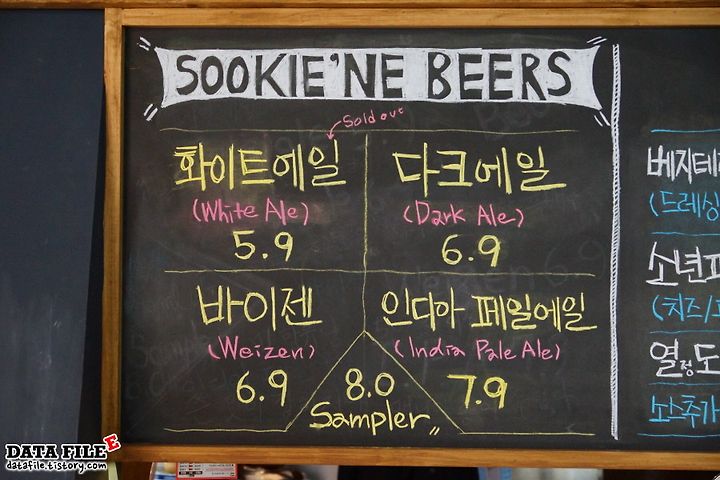 SOOKIE'NE BEERS
Sold out
화이트에일
(White Ale)
5.9
다크에일
(Dark Ale)
6.9
바이젠
(Weizen)
6.9
인디아 페일에일
(India Pale Ale)
7.9
8.0
Sampler
베지테
(드레싱
소년
(치즈/
열정도
소스추가
DATA FILE E
datafile.tistory.com